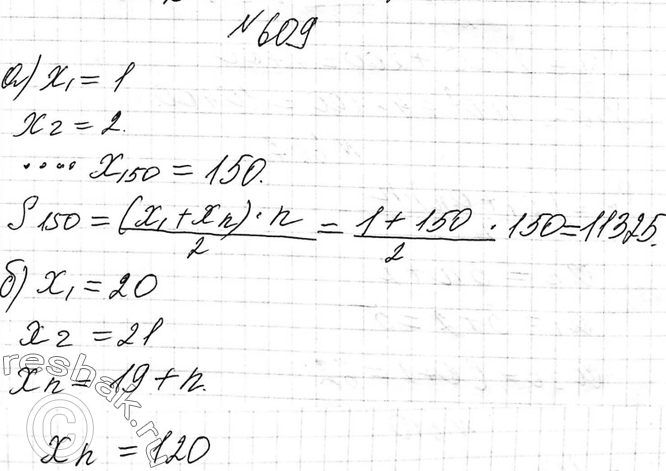 №609
а) x₁ = 1
x₂ = 2.
.... x₁₅₀ = 150.
S₁₅₀ = (x₁ + xₙ)·n / 2 = 1 + 150 / 2 · 150 = 11325.
б) x₁ = 20
x₂ = 21
xₙ = 19 + n.
xₙ = 120
reshak.ru
©